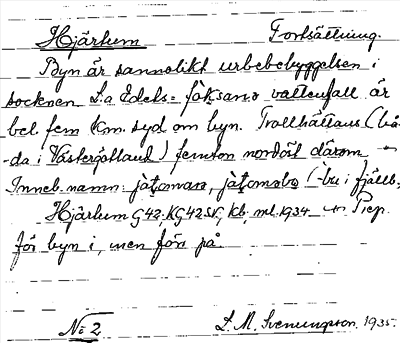 Hjärtum Fortsättning.
Byn är sannolikt urbebebyggelsen i
socknen. L:a Edets = fåksans vattenfall är
bel. fem km. syd om byn. Trollhättans (bå-
da i Västergötland) femton nordost därom –
Inneb. namn: jåtomans, jåtomsbo (-bu i fjällb.
Hjärtum G42; KG 42 SV; Kb. ml. 1934. Prep.
för byn i, men förs på.
No 2 L. M. Svenungsson. 1935.